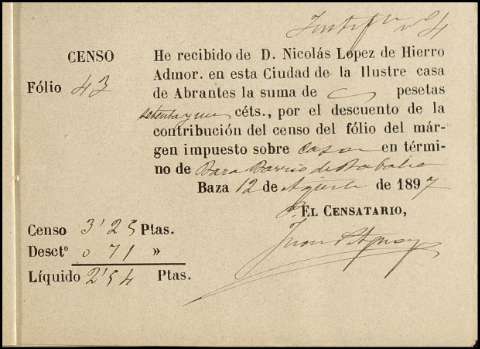 CENSO
Fólio 43
He recibido de D. Nicolás López de Hierro
Admor. en esta Ciudad de la Ilustre casa
de Abrantes la suma de pesetas
setenta y un céts., por el descuento de la
contribución del censo del fólio del már-
gen impuesto sobre Casa en térmi-
no de Baza Barrio de
Baza 12 de Agosto de 1897
EL CENSATARIO,
Juan
Censo 3'25 Ptas.
Desctº 0 71 »
Líquido 2'54 Ptas.